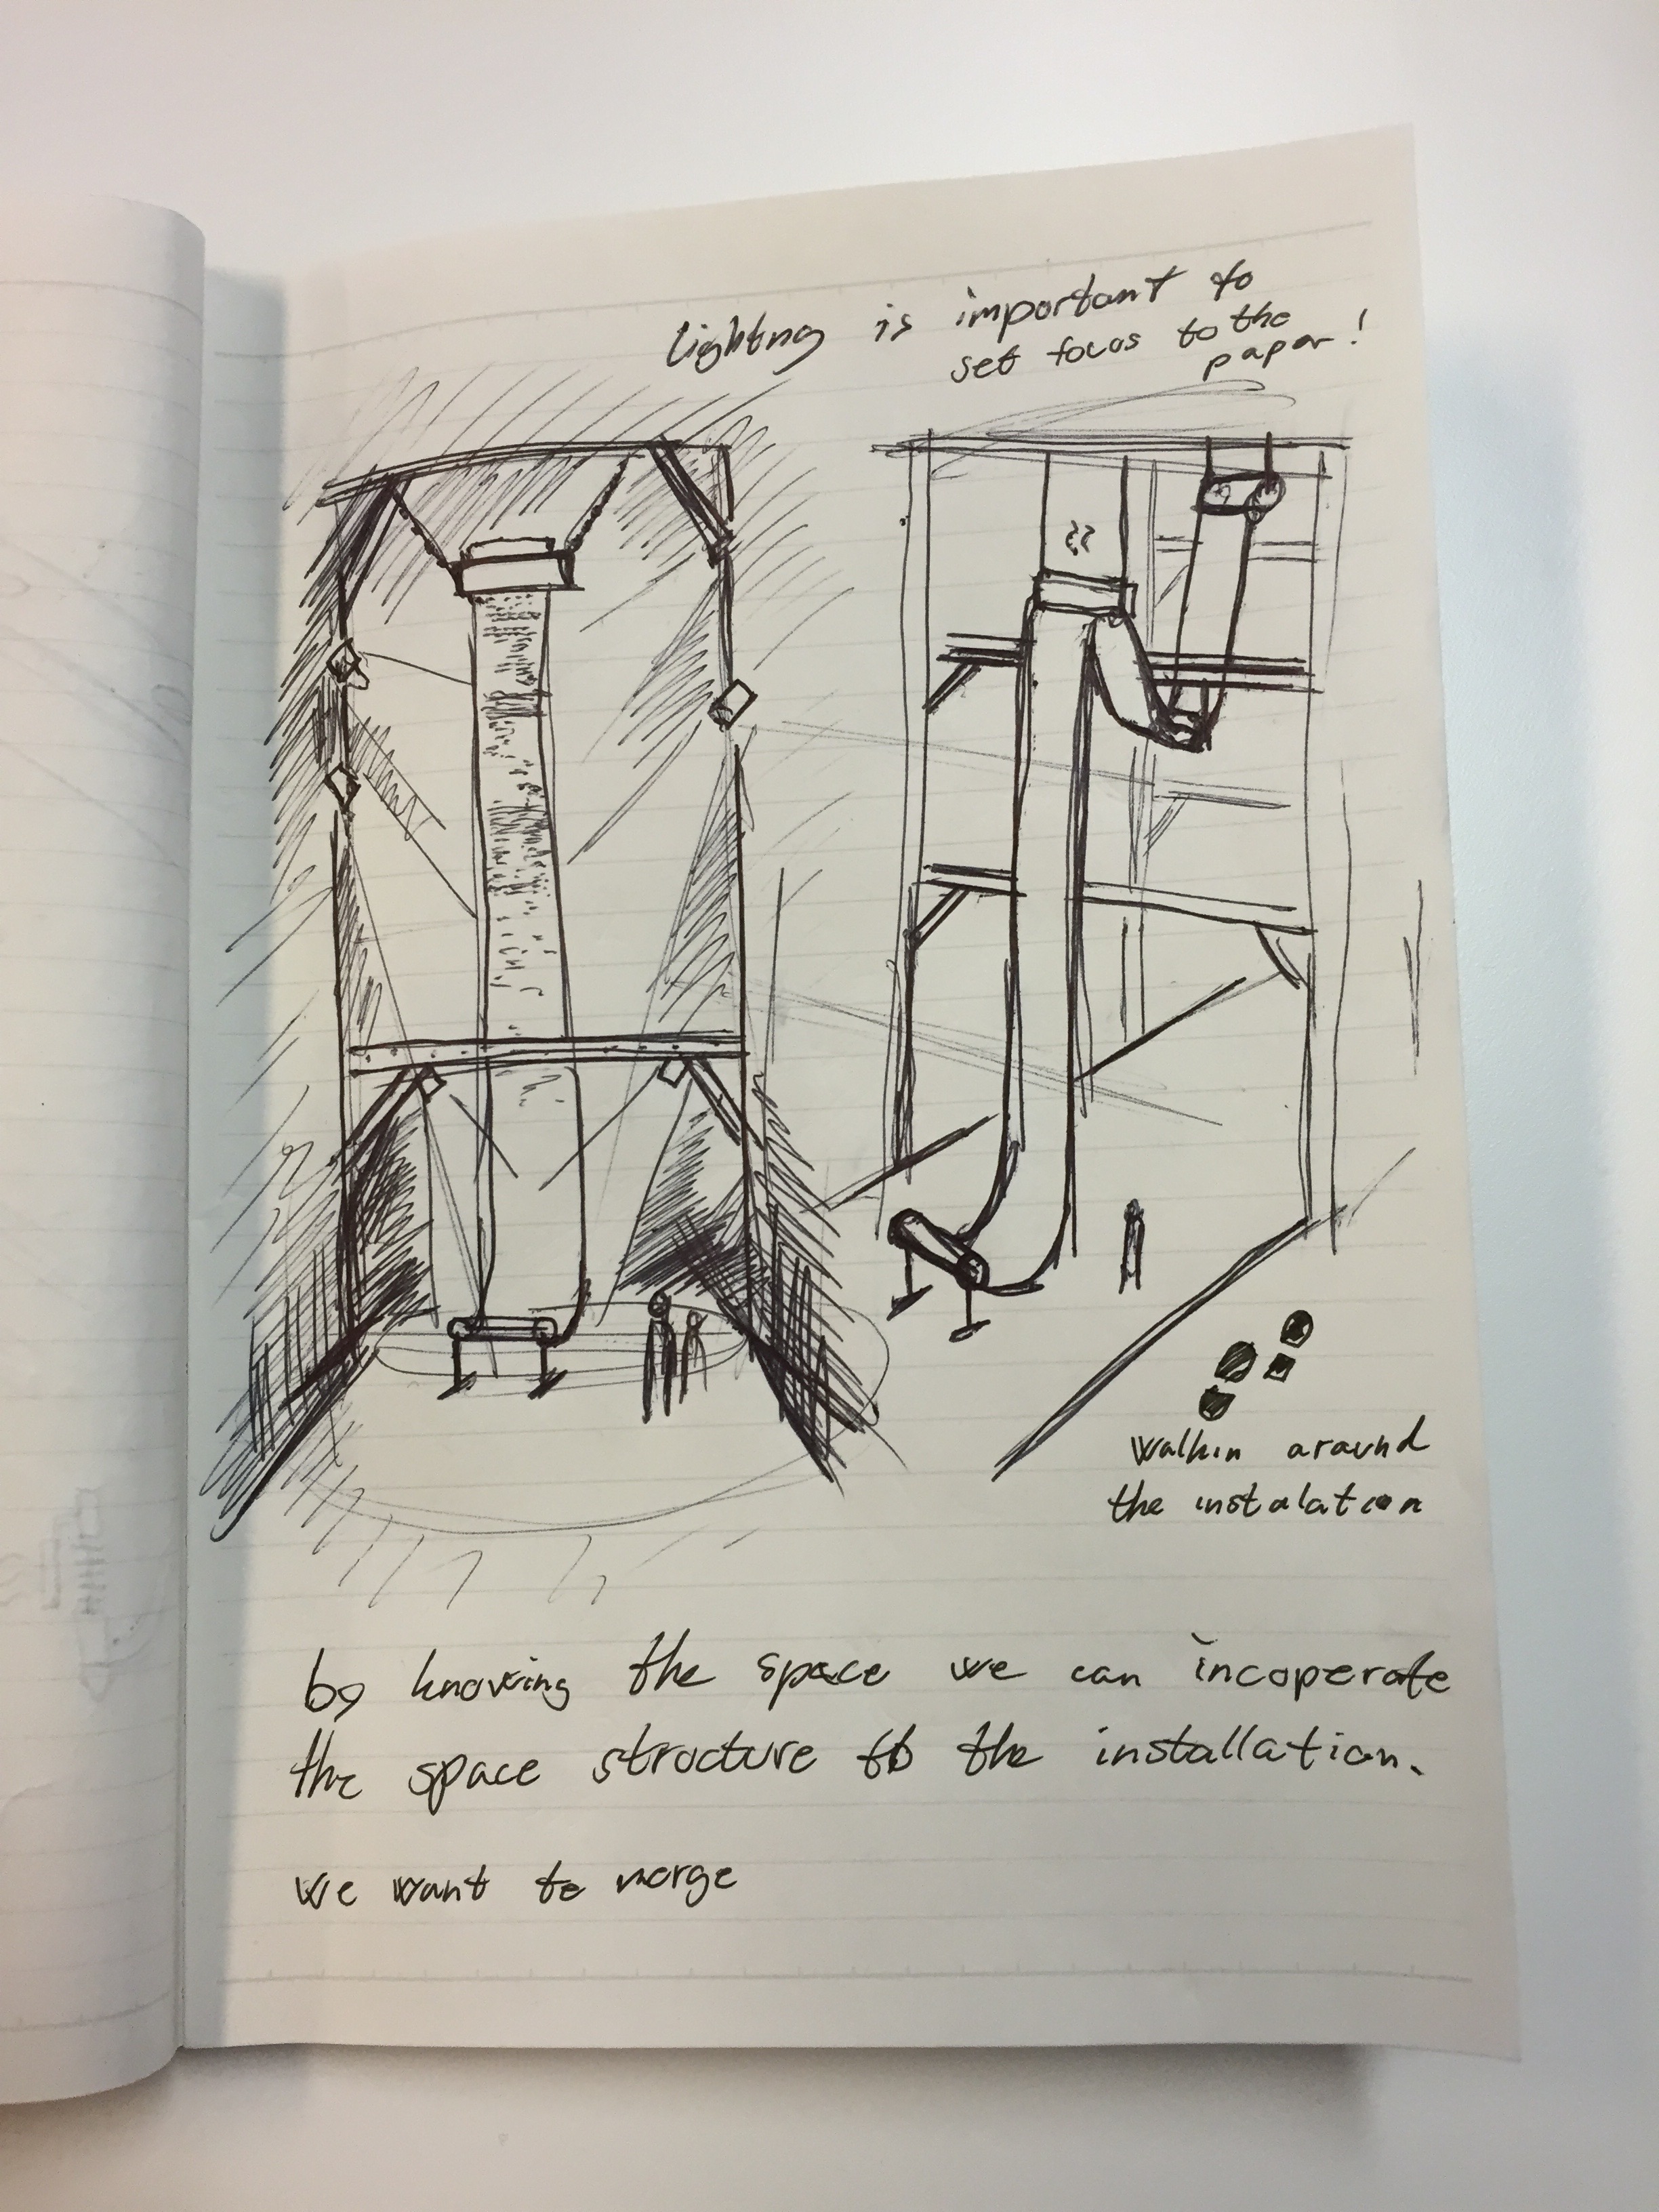 lightng is important to
set focus to the
paper!
walkin around
the instalation
by knowing the space we can incoperate
the space structure to the installation.
we want to merge